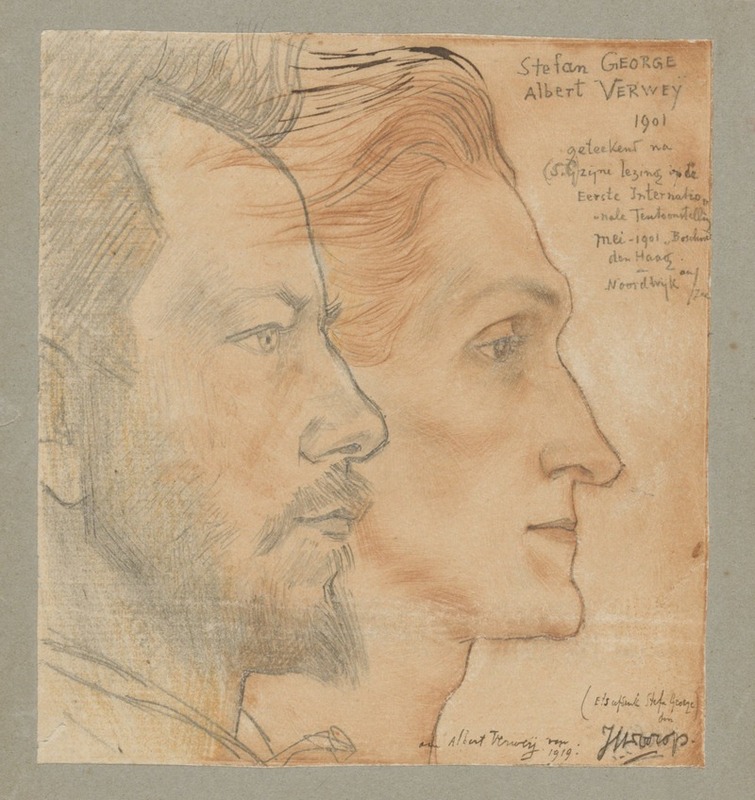 Stefan GEORGE
Albert VERWEY
1901
geteekent na
lezing in de
Eerste Internatio
nale Tentoonstelling
Mei - 1901 „Boschn
den Haag.
Noordwijk
Stefan George
aan Albert Verweij van
1919.
JThToorop.